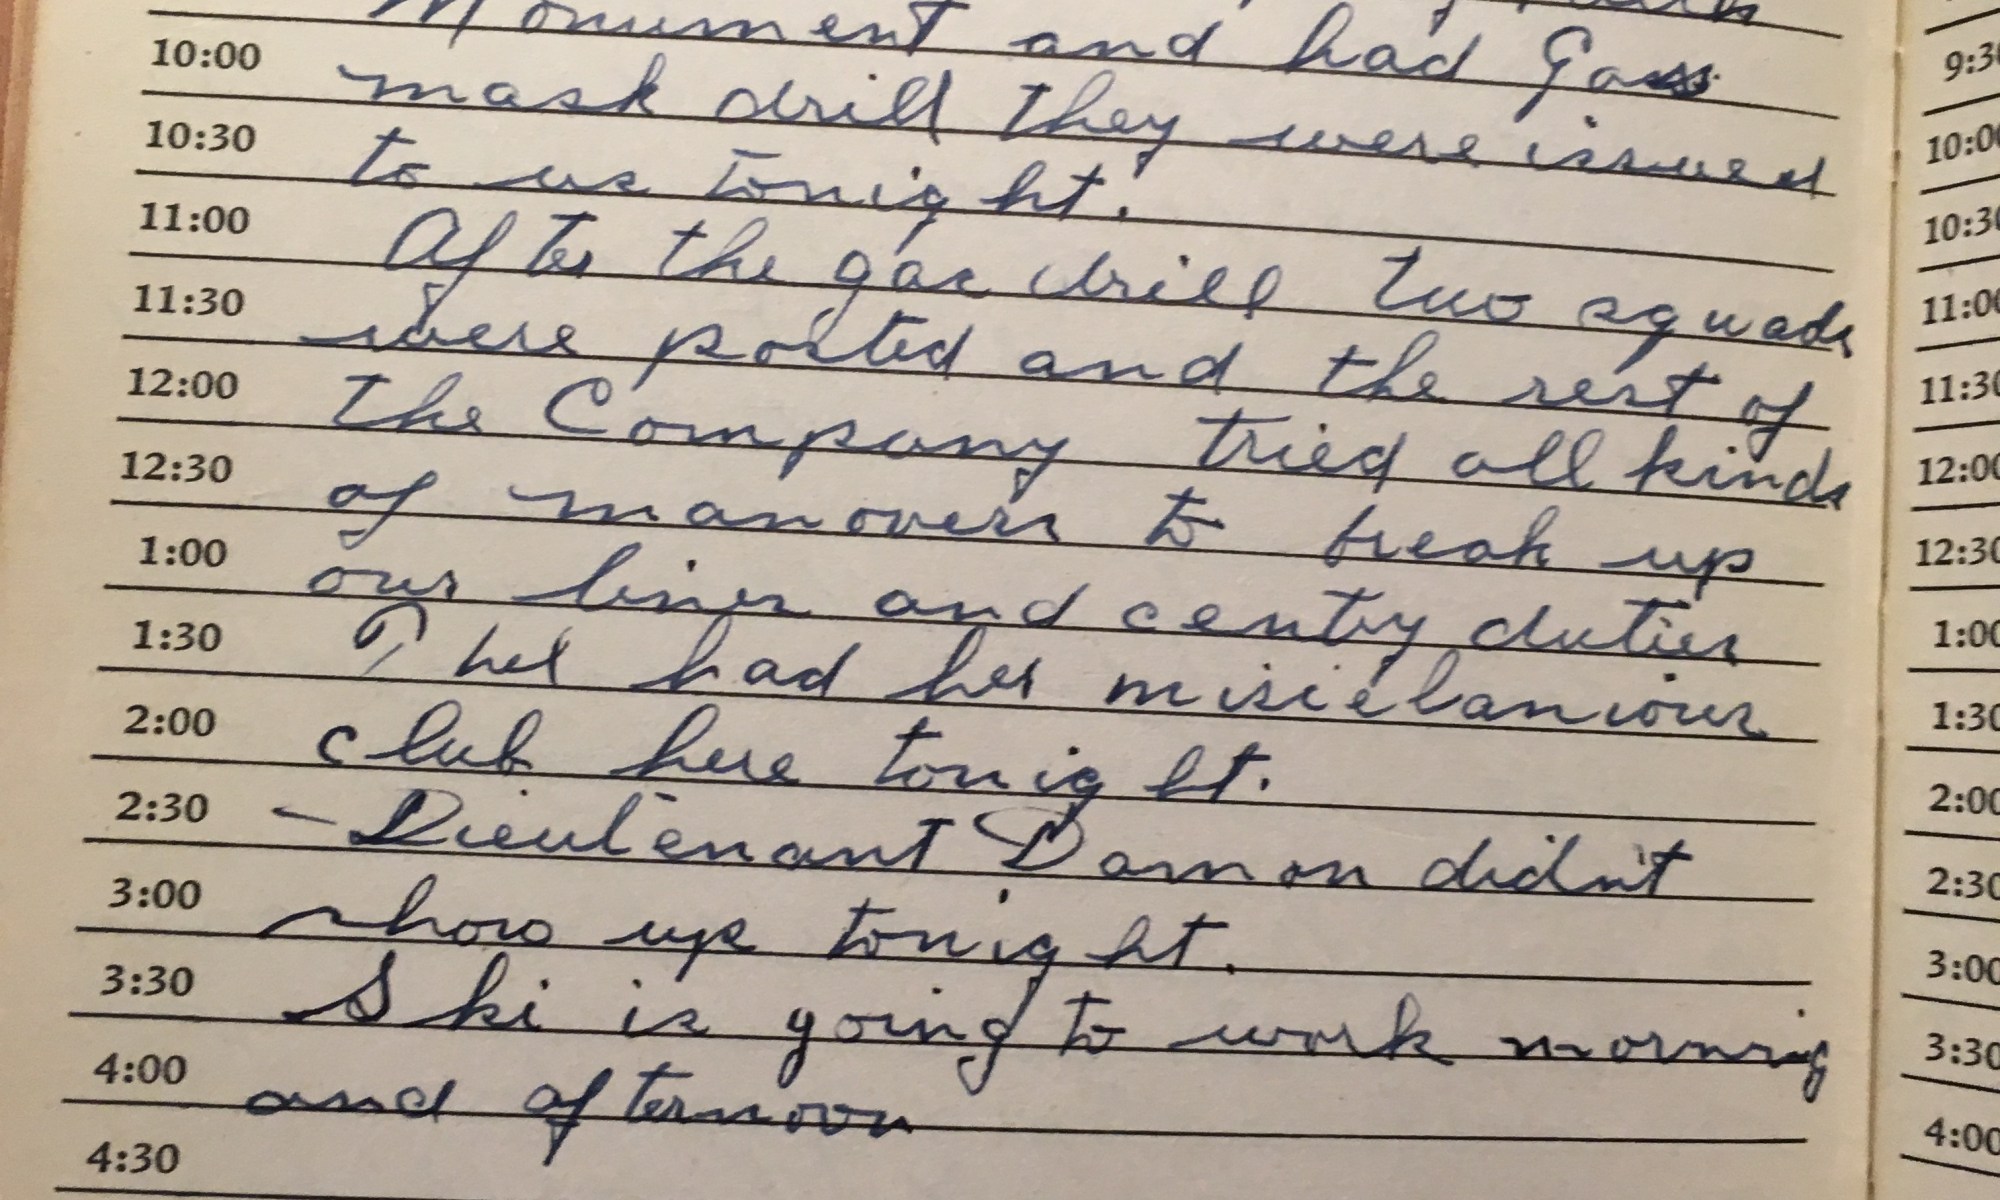 Monument and had Gas
10:00 mask drill they were issued
10:30 to us tonight.
11:00 After the gas drill two squads
11:30 were posted and the rest of
12:00 the Company tried all kinds
12:30 of manovers to break up
1:00 our lines and centry duties
1:30 Thel had her miscielanious
2:00 club here tonight.
2:30 – Lieutenant Damon didn't
3:00 show up tonight.
3:30 Ski is going to work morning
4:00 and afternoon
4:30
9:30
10:00
10:30
11:00
11:30
12:00
12:30
1:00
1:30
2:00
2:30
3:00
3:30
4:00